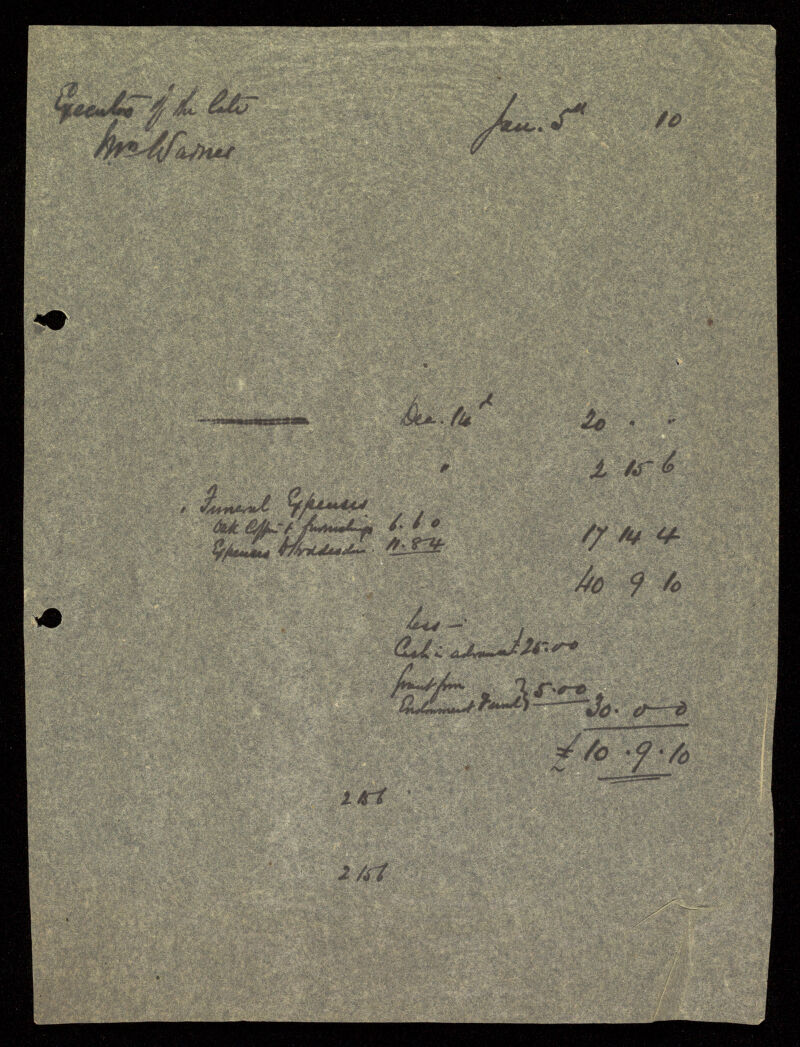 Executors of the late Jan. 5th 10
Mrs Warner
Dec. 14th 20 " "
" 2 15 6
" Funeral Expenses
Oak Coffin & furnishings 6.6 0
Expenses 11.8 4 17 14 4
40 9 10
Less —
Cash in advance £25.0 0
Grant from
Endowment Fund } 5.0 0 30. 0 0
£10.9.10
2 15 6
2 15 6